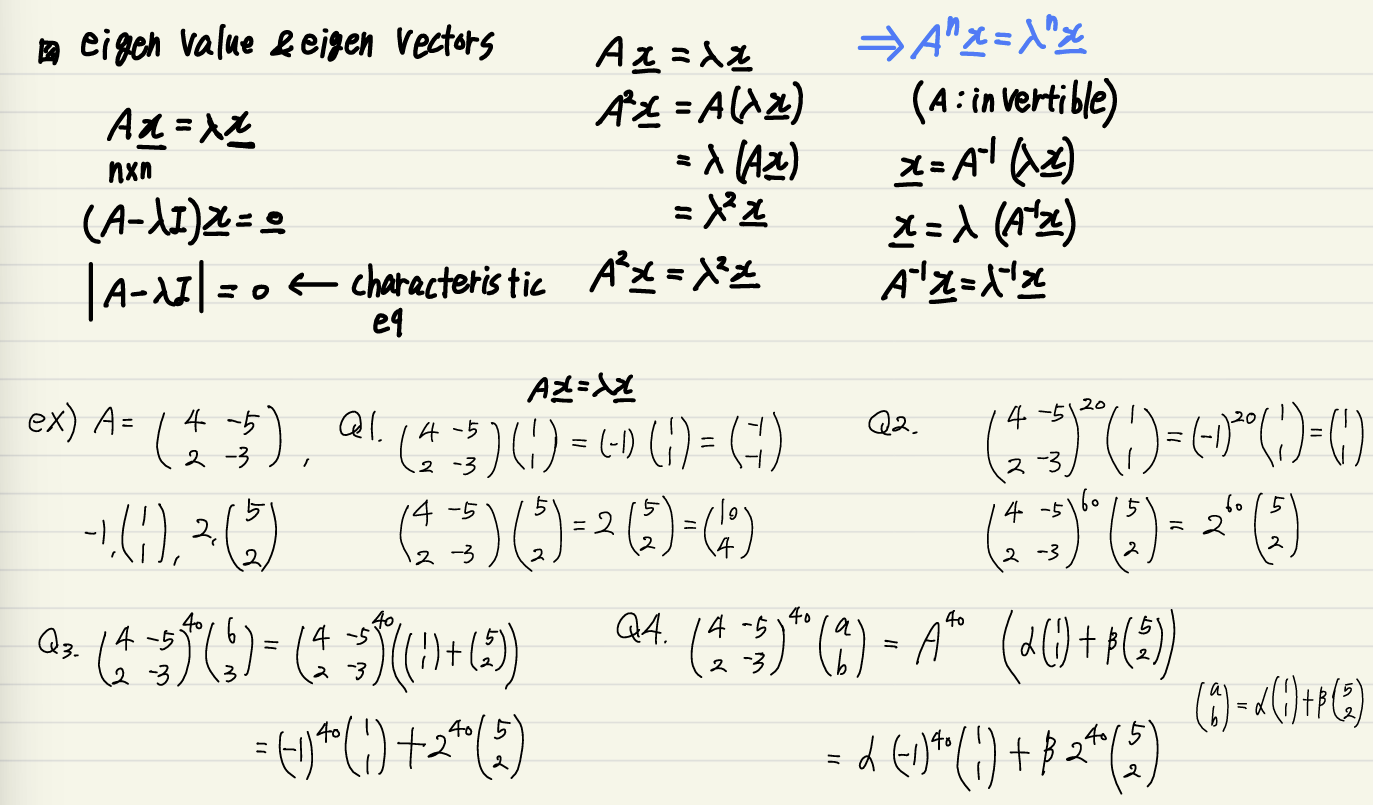 eigen value & eigen vectors
Ax = λx
n×n
(A-λI)x = 0
|A-λI| = 0 ← characteristic
eq
Ax = λx
A²x = A(λx)
= λ(Ax)
= λ²x
A²x = λ²x
⇒ Aⁿx = λⁿx
(A : invertible)
x = A⁻¹(λx)
x = λ(A⁻¹x)
A⁻¹x = λ⁻¹x
Ax = λx
ex) A = (4 -5; 2 -3),
-1, (1; 1), 2, (5; 2)
Q1. (4 -5; 2 -3)(1; 1) = (-1)(1; 1) = (-1; -1)
(4 -5; 2 -3)(5; 2) = 2(5; 2) = (10; 4)
Q2. (4 -5; 2 -3)²⁰(1; 1) = (-1)²⁰(1; 1) = (1; 1)
(4 -5; 2 -3)⁶⁰(5; 2) = 2⁶⁰(5; 2)
Q3. (4 -5; 2 -3)⁴⁰(6; 3) = (4 -5; 2 -3)⁴⁰((1; 1) + (5; 2))
= (-1)⁴⁰(1; 1) + 2⁴⁰(5; 2)
Q4. (4 -5; 2 -3)⁴⁰(a; b) = A⁴⁰ (α(1; 1) + β(5; 2))
(a; b) = α(1; 1) + β(5; 2)
= α(-1)⁴⁰(1; 1) + β 2⁴⁰(5; 2)